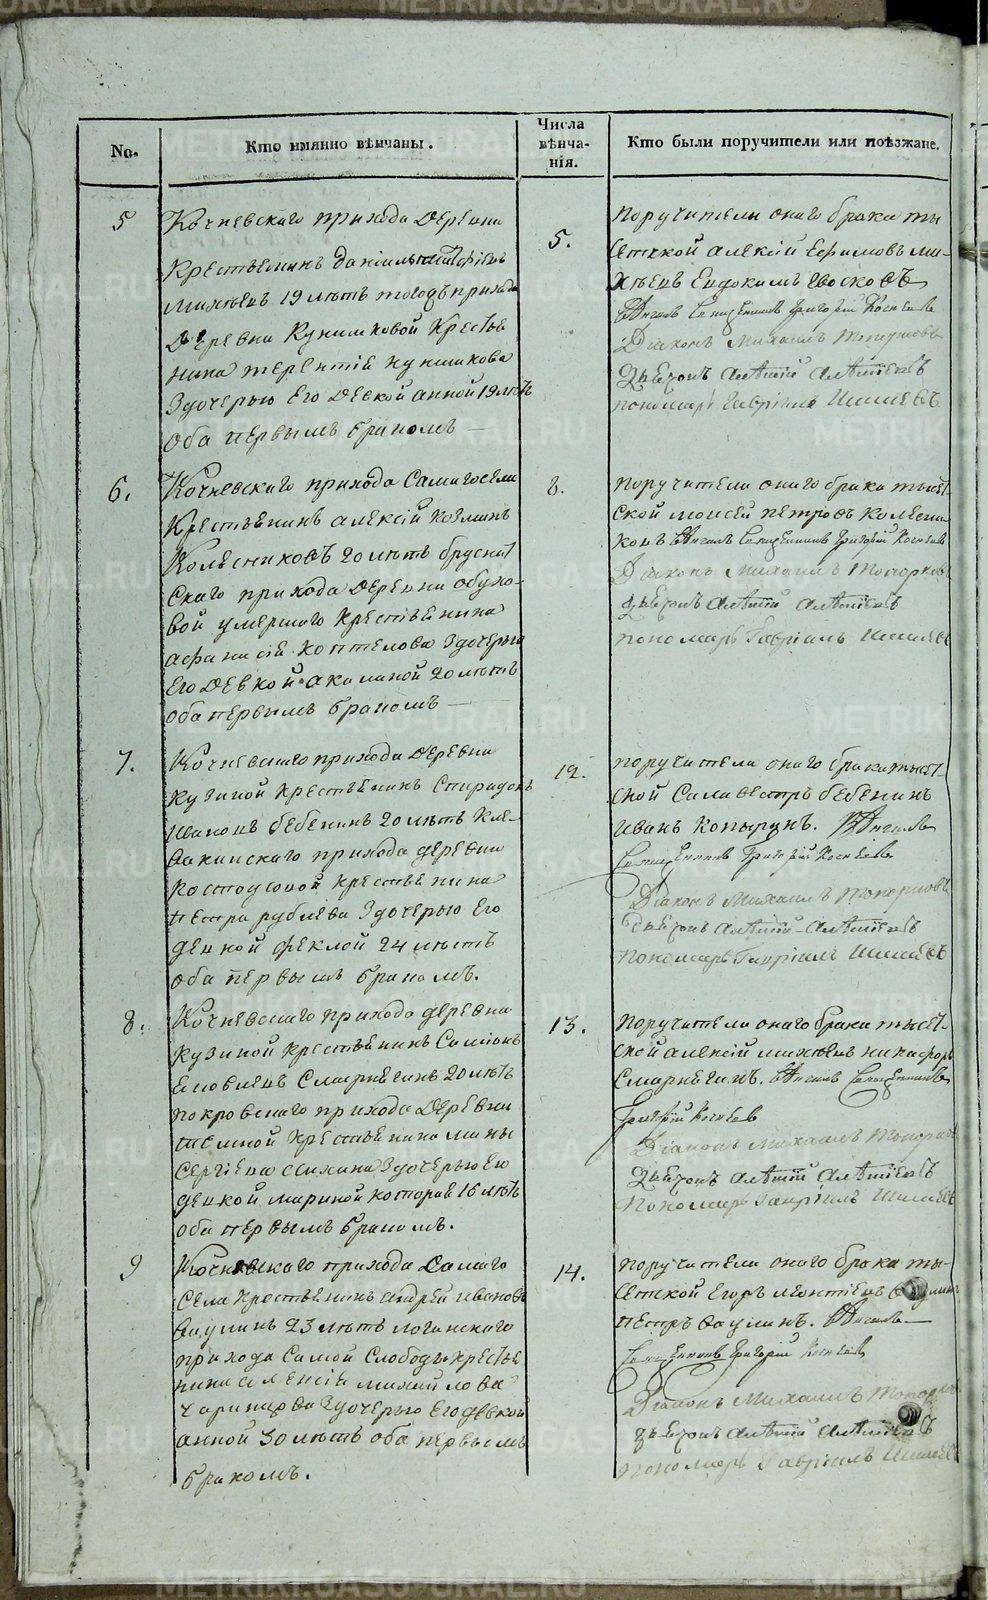 No.
Кто имянно вѣнчаны.
Числа
вѣнча-
нія.
Кто были поручители или поѣзжане.
5
Кочневскаго прихода деревни
Крестьянинъ Даніилъ
Михѣевъ 19 лѣтъ тогожъ прихода
деревни Куникковой Кресть
нина Терентіе
Здочерью Его девкой Анной 19 лѣтъ
оба первымъ бракомъ —
5.
Поручители онаго брака ты
сетской Алексій Ефимовъ Ми-
хѣевъ Евдокимъ
Священникъ Григорій
Діаконъ Михаилъ Топорковъ
Алѣѯій Алѣѯіевъ
пономарь Гавріилъ Шишевъ
6.
Кочневскаго прихода Самагосела
Крестьянинъ Алексій Козминъ
Колесниковъ 20 лѣтъ Бруснят
скаго прихода деревни Обухо-
вой умершаго Крестьенина
Афанасіе Коптелова Здочерью
Его Девкой Акилиной 20 лѣтъ
оба первымъ бракомъ —
8.
Поручители онаго брака тысет
ской Моисей Петровъ Колесни
ковъ Священникъ Григорій
Діаконъ Михаилъ Топорков
Алѣѯій Алѣѯіевъ
пономарь Гавріилъ Шишевъ
7.
Кочневскаго прихода деревни
Кузиной крестьенинъ Спиридонъ
Ивановъ Бебенинъ 20 лѣтъ Кле-
вакинскаго прихода деревни
Костоусовой крестьенина
Петра Рублева Здочерью Его
девкой Феклой 24 лѣтъ
оба первымъ бракомъ.
12.
поручители онаго брака тысет-
ской Саливестръ Бебенинъ
Иванъ Копыринъ.
Священникъ Григорій
Діаконъ Михаилъ Топорковъ
Алѣѯій Алѣѯіевъ
Пономарь Гавріилъ Шишевъ
8.
Кочневскаго прихода деревни
Кузиной крестьенинъ Самсонъ
Смарнегинъ 20 лѣтъ
покровскаго прихода Деревни
Темной крестьенина Мины
Сергіева Здочерью Ею
девкой Мариной которае 16 лѣтъ
оба первымъ бракомъ.
13.
Поручители онаго брака тысет-
ской Алексій Михѣевъ Никафоръ
Смарнегинъ. Священникъ
Григорій
Діаконъ Михаилъ Топорков
Алѣѯій Алѣѯіевъ
Пономарь Гавріилъ Шишевъ
9
Кочневскаго прихода Самаго
Села Крестьенинъ Андрей Ивановъ
Ваулинъ 23 лѣтъ логинскаго
прихода Самой Слободы кресте
нина Алексіе Михайлова
Здочерью Его девкой
Анной 30 лѣтъ оба первымъ
бракомъ.
14.
поручители онаго брака ты-
сетской Егоръ Леонтіевъ Ваулинъ
Петръ Ваулинъ.
Священникъ Григорій
Діаконъ Михаилъ Топорков
Алѣѯій Алѣѯіевъ
пономарь Гавріилъ Шишев
METRIKI.GASO-URAL.RU